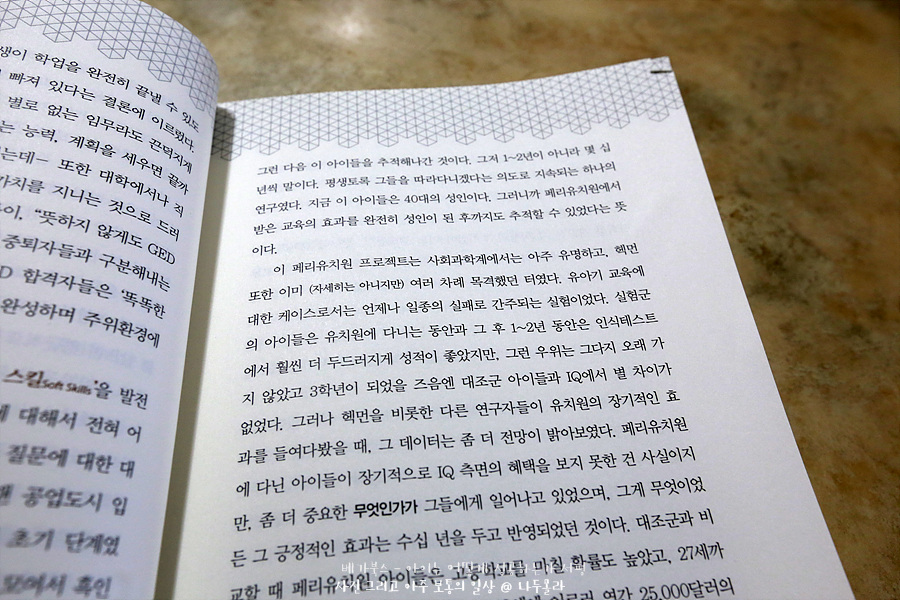 생이 학업을 완전히 끝낼 수 있도
빠져 있다는 결론에 이르렀다.
별로 없는 임무라도 끈덕지게
는 능력. 계획을 세우면 끝까
는데- 또한 대학에서나 직
가치를 지니는 것으로 드러
이. “뜻하지 않게도 GED
중퇴자들과 구분해내는
D 합격자들은 '똑똑한
완성하며 주위환경에
스킬Soft Skills'을 발전
에 대해서 전혀 어
질문에 대한 대
공업도시 입
초기 단계였
에서 흑인
그런 다음 이 아이들을 추적해나간 것이다. 그저 1~2년이 아니라 몇 십
년씩 말이다. 평생토록 그들을 따라다니겠다는 의도로 지속되는 하나의
연구였다. 지금 이 아이들은 40대의 성인이다. 그러니까 페리유치원에서
받은 교육의 효과를 완전히 성인이 된 후까지도 추적할 수 있었다는 뜻
이다.
이 페리유치원 프로젝트는 사회과학계에서는 아주 유명하고, 헥먼
또한 이미 (자세히는 아니지만) 여러 차례 목격했던 터였다. 유아기 교육에
대한 케이스로서는 언제나 일종의 실패로 간주되는 실험이었다. 실험군
의 아이들은 유치원에 다니는 동안과 그 후 1~2년 동안은 인식테스트
에서 훨씬 더 두드러지게 성적이 좋았지만, 그런 우위는 그다지 오래 가
지 않았고 3학년이 되었을 즈음엔 대조군 아이들과 IQ에서 별 차이가
없었다. 그러나 헥먼을 비롯한 다른 연구자들이 유치원의 장기적인 효
과를 들여다봤을 때, 그 데이터는 좀 더 전망이 밝아보였다. 페리유치원
에 다닌 아이들이 장기적으로 IQ 측면의 혜택을 보지 못한 건 사실이지
만, 좀 더 중요한 무엇인가가 그들에게 일어나고 있었으며, 그게 무엇이었
든 그 긍정적인 효과는 수십 년을 두고 반영되었던 것이다. 대조군과 비
교할 때 페리유치원 아이들은 고등학교를 마칠 확률도 높았고, 27세까
이르러 연간 25,000달러의
사진 그리고 아주 보통의 일상 @ 나두롤라